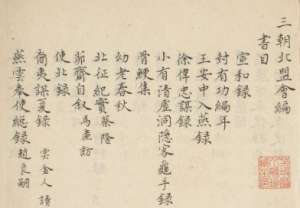 三朝北盟會編
書目
宣和錄
封有功編年
王安中入燕録
徐偉忠謀録
小有清虛洞隱客龜手録
骨鯁集
幼老春秋
北征紀實 蔡絛
節齋自叙 馬擴
使北録
裔夷謀夏録
燕雲奉使録 趙良嗣